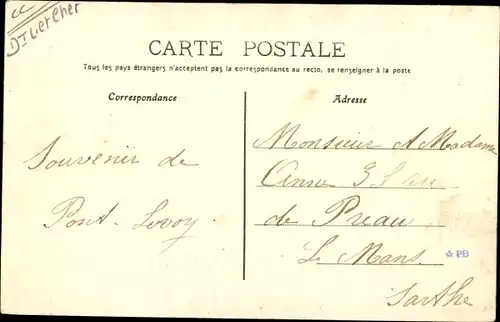 CC
Dt Loir et Cher
CARTE POSTALE
Tous les pays étrangers n'acceptent pas la correspondance au recto, se renseigner à la poste
Correspondance
Adresse
Souvenir de
Pont-Levoy
Monsieur & Madame
de Preau
Le Mans
☆ PB
Sarthe